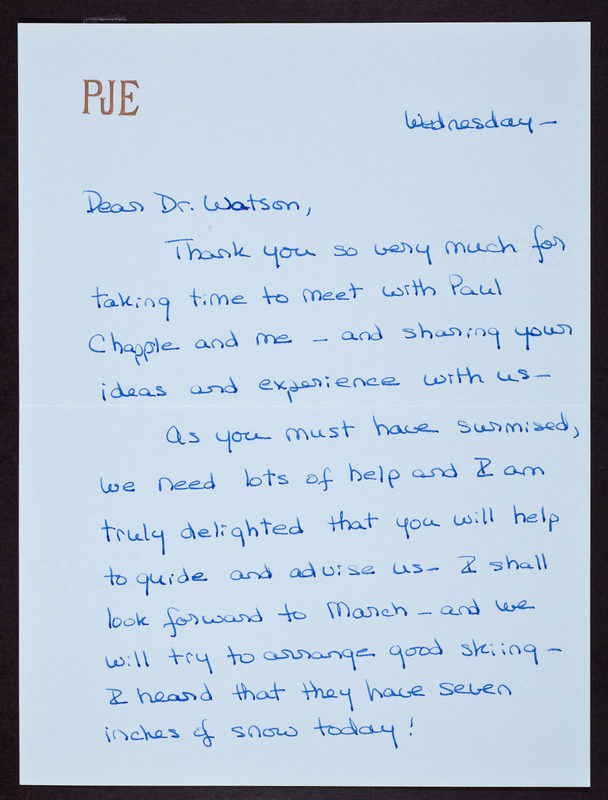 PJE
Wednesday —
Dear Dr. Watson,
Thank you so very much for
taking time to meet with Paul
Chapple and me — and sharing your
ideas and experience with us —
As you must have surmised,
we need lots of help and I am
truly delighted that you will help
to guide and advise us — I shall
look forward to March — and we
will try to arrange good skiing —
I heard that they have seven
inches of snow today!